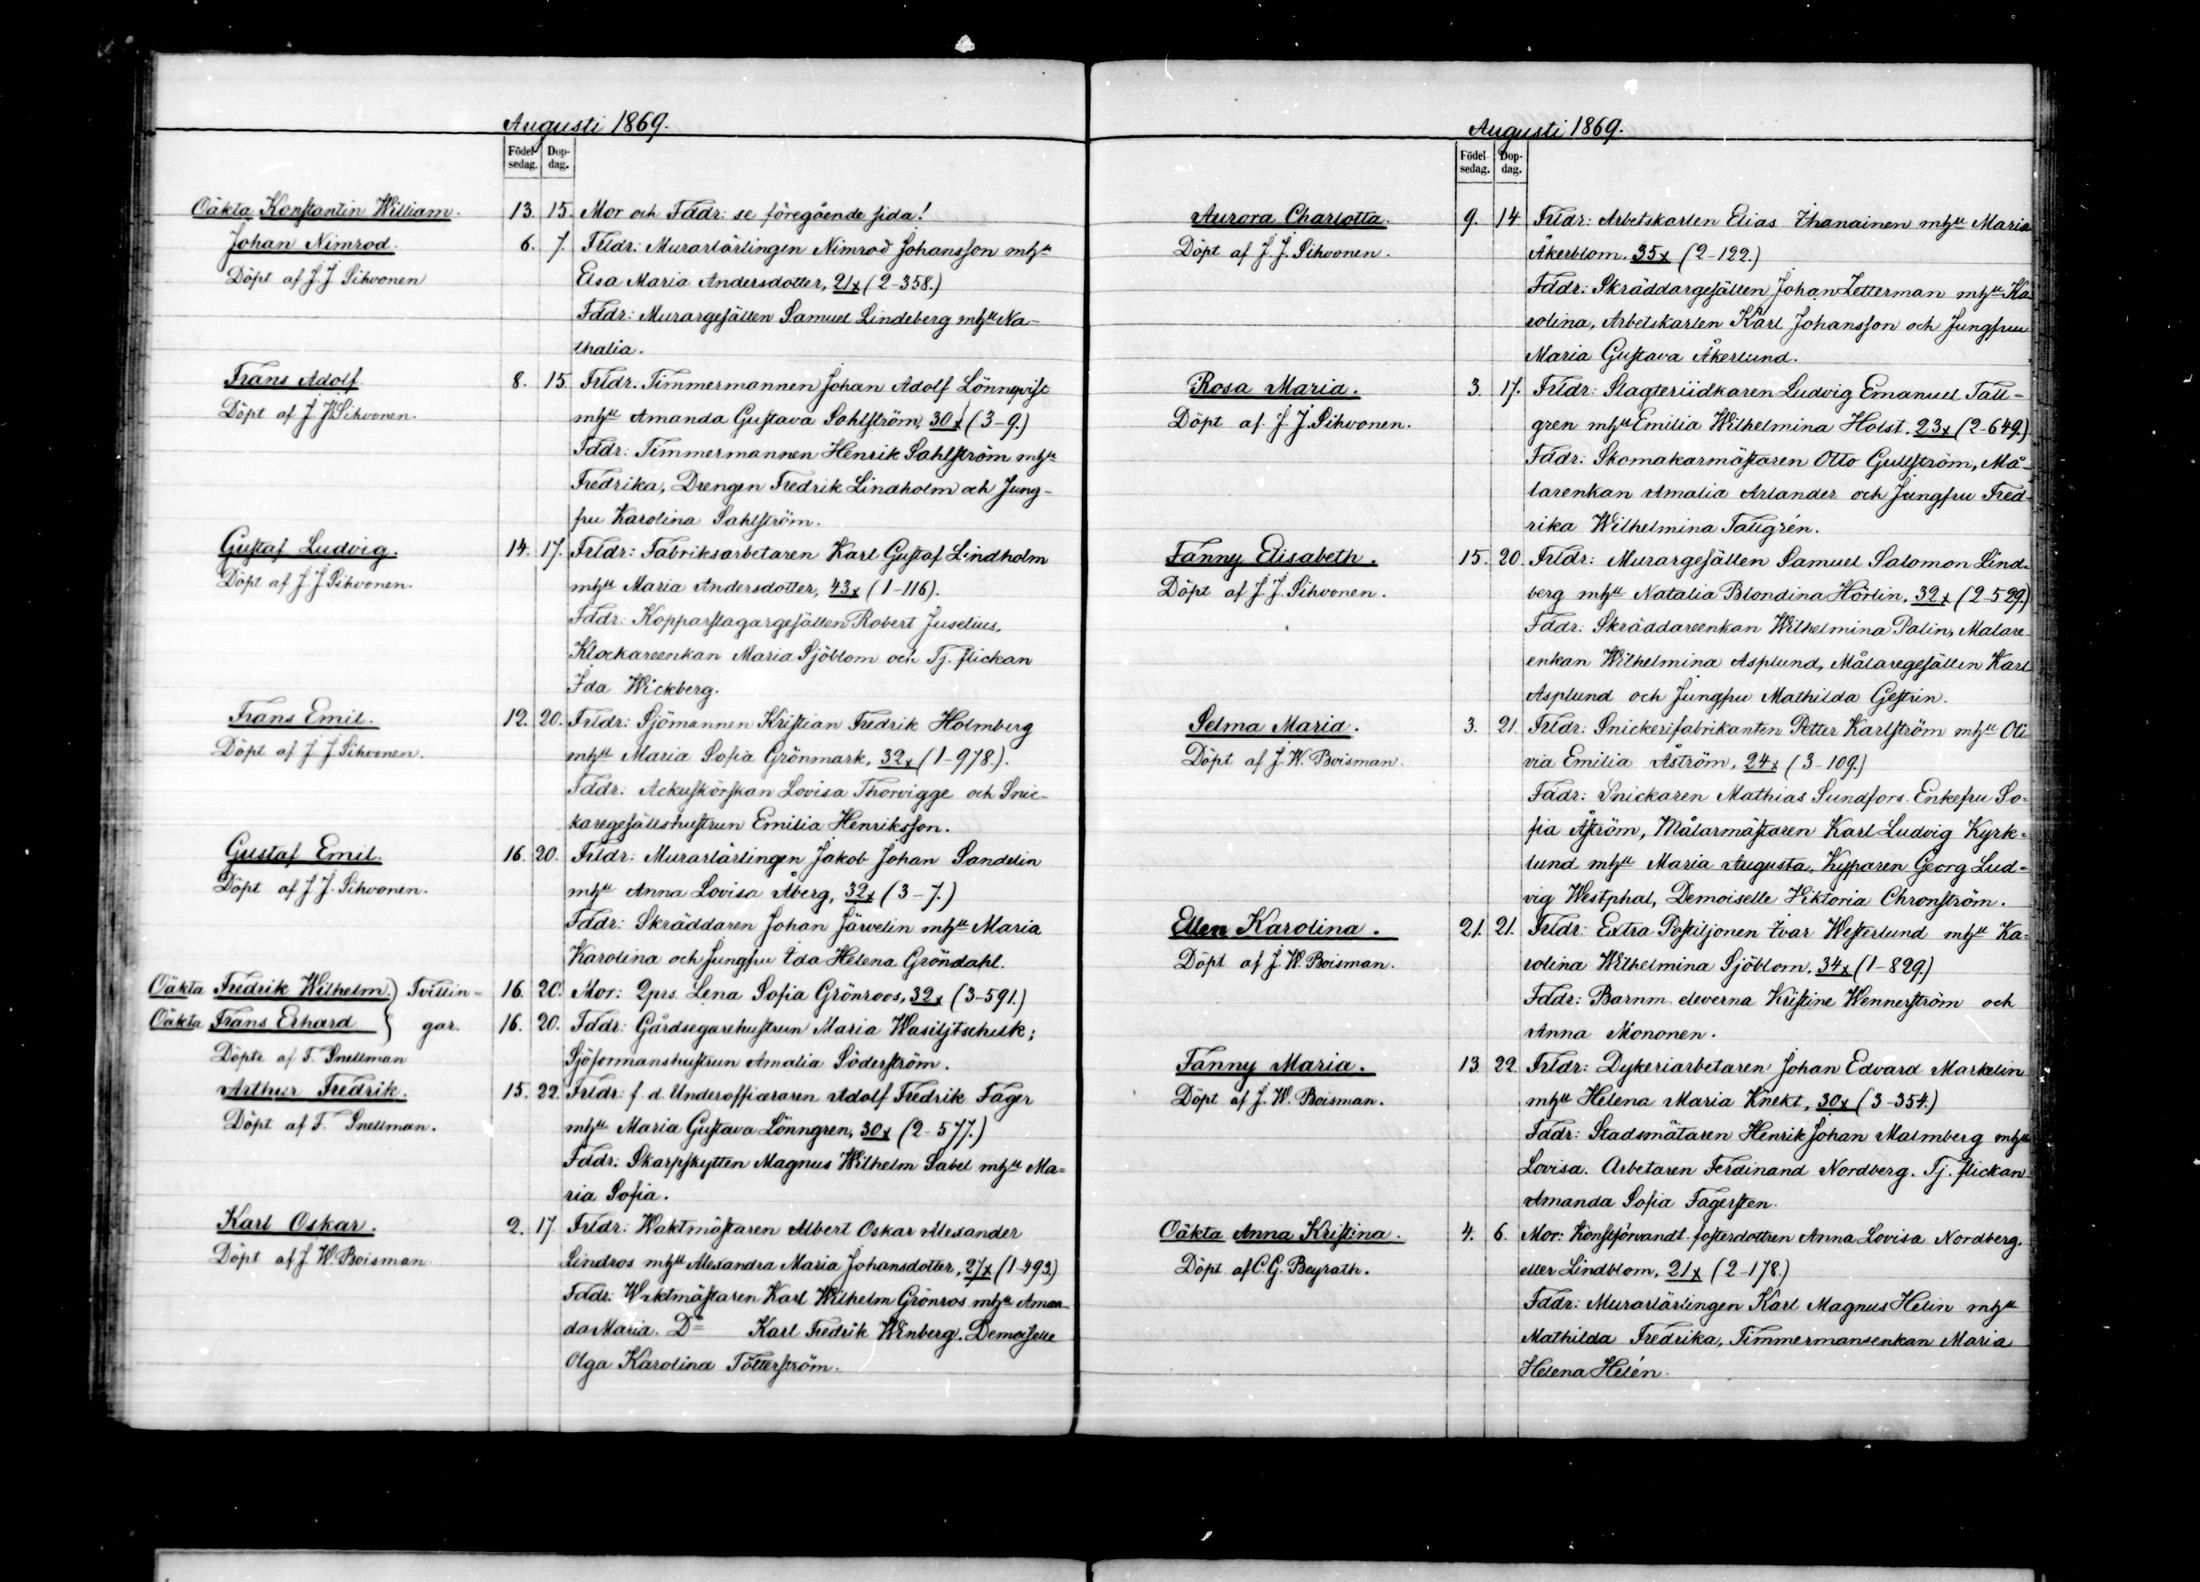 Augusti 1869.
Födel-
sedag.
Dop-
dag.
Oäkta Konstantin William. 13. 15. Mor och Fddr: se föregående sida!
Johan Nimrod. 6. 7. Frldr: Murarlärlingen Nimrod Johansson mhu
Döpt af J. J. Sihvonen Elsa Maria Andersdotter, 21x (2-358.)
Fddr: Murargesällen Samuel Lindeberg mhu Na-
thalia.
Frans Adolf. 8. 15. Frldr. Timmermannen Johan Adolf Lönnqvist
Döpt af J. J. Sihvonen. mhu Amanda Gustava Sahlström, 30x (3-9.)
Fddr: Timmermannen Henrik Sahlström mhu
Fredrika, Drengen Fredrik Lindholm och Jung-
fru Karolina Sahlström.
Gustaf Ludvig. 14. 17. Frldr: Fabriksarbetaren Karl Gustaf Lindholm
Döpt af J. J. Sihvonen. mhu Maria Andersdotter, 43x (1-116).
Fddr: Kopparslagargesällen Robert Juselius,
Klockareenkan Maria Sjöblom och Tj. flickan
Ida Wickberg.
Frans Emil. 12. 20. Frldr: Sjömannen Kristian Fredrik Holmberg
Döpt af J. J. Sihvonen. mhu Maria Sofia Grönmark, 32x (1-978.).
Fddr: Ackuskörskan Lovisa Thorvigge och Snic-
karegesällshustrun Emilia Henriksson.
Gustaf Emil. 16. 20. Frldr: Murarlärlingen Jakob Johan Sandelin
Döpt af J. J. Sihvonen. mhu Anna Lovisa Åberg, 32x (3-7.)
Fddr: Skräddaren Johan Järvelin mhu Maria
Karolina och Jungfru Ida Helena Gröndahl.
Oäkta Fredrik Wilhelm.) Tvillin- 16. 20. Mor: Qprs Lena Sofia Grönroos, 32x (3-591.)
Oäkta Frans Erhard } gar. 16. 20. Fddr: Gårdsegarehustrun Maria Wasiljtschuk;
Döpte af F. Snellman Sjöformanshustrun Amalia Söderström.
Arthur Fredrik. 15. 22. Frldr: f. d. Underofficeraren Adolf Fredrik Fager
Döpt af F. Snellman. mhu Maria Gustava Lönngren, 30x (2-577.)
Fddr: Skarpskytten Magnus Wilhelm Sabel mhu Ma-
ria Sofia.
Karl Oskar. 2. 17. Frldr: Waktmästaren Albert Oskar Alexander
Döpt af J. W. Boisman. Lindros mhu Alexandra Maria Johansdotter, 27x (1-493)
Fddr: Waktmästaren Karl Wilhelm Grönros mhu Aman-
da Maria. Do Karl Fredrik Winberg. Demoiselle
Olga Karolina Tötterström.
Augusti 1869.
Födel-
sedag.
Dop-
dag.
Aurora Charlotta. 9. 14. Frldr: Arbetskarlen Elias Ihanainen mhu Maria
Döpt af J. J. Sihvonen. Åkerblom. 35x (2-122.)
Fddr: Skräddargesällen Johan Zetterman mhu Ka
rolina, Arbetskarlen Karl Johansson och Jungfrun
Maria Gustava Åkerlund.
Rosa Maria. 3. 17. Frldr: Slagteriidkaren Ludvig Emanuel Tall-
Döpt af J. J. Sihvonen. gren mhu Emilia Wilhelmina Holst. 23x (2-649.)
Fddr: Skomakarmästaren Otto Gullström, Må-
larenkan Amalia Arlander och Jungfru Fred-
rika Wilhelmina Tallgrén.
Fanny Elisabeth. 15. 20. Frldr: Murargesällen Samuel Salomon Lind-
Döpt af J. J. Sihvonen. berg mhu Natalia Blondina Hörlin, 32x (2-529)
Fddr: Skräddareenkan Wilhelmina Palin, Målare-
enkan Wilhelmina Asplund, Målaregesällen Karl
Asplund och Jungfru Mathilda Gestrin.
Selma Maria. 3. 21. Frldr: Snickerifabrikanten Petter Karlström mhu Oli
Döpt af J. W. Boisman. via Emilia Åström, 24x (3-109.)
Fddr: Snickaren Mathias Sundfors. Enkefru So-
fia Åström, Målarmästaren Karl Ludvig Kyrk-
lund mhu Maria Augusta. Kyparen Georg Lud-
vig Westphal, Demoiselle Viktoria Chronström.
Ellen Karolina. 21. 21. Frldr: Extra Postiljonen Ivar Westerlund mhu Ka-
Döpt af J. W. Boisman. rolina Wilhelmina Sjöblom, 34x (1-829.)
Fddr: Barnm. eleverna Kristine Wennerström och
Anna Mononen.
Fanny Maria. 13. 22. Frldr: Dykeriarbetaren Johan Edvard Markelin
Döpt af J. W. Boisman. mhu Helena Maria Knekt, 30x (3-354.)
Fddr: Stadsmätaren Henrik Johan Malmberg mhu
Lovisa. Arbetaren Ferdinand Nordberg. Tj. flickan
Amanda Sofia Fagersten.
Oäkta Anna Kristina. 4. 6. Mor: Konstförvandt. fosterdottren Anna Lovisa Nordberg.
Döpt af C. G. Beyrath. eller Lindblom, 21x (2-178.)
Fddr: Murarlärlingen Karl Magnus Helin mhu
Mathilda Fredrika, Timmermansenkan Maria
Helena Helén.